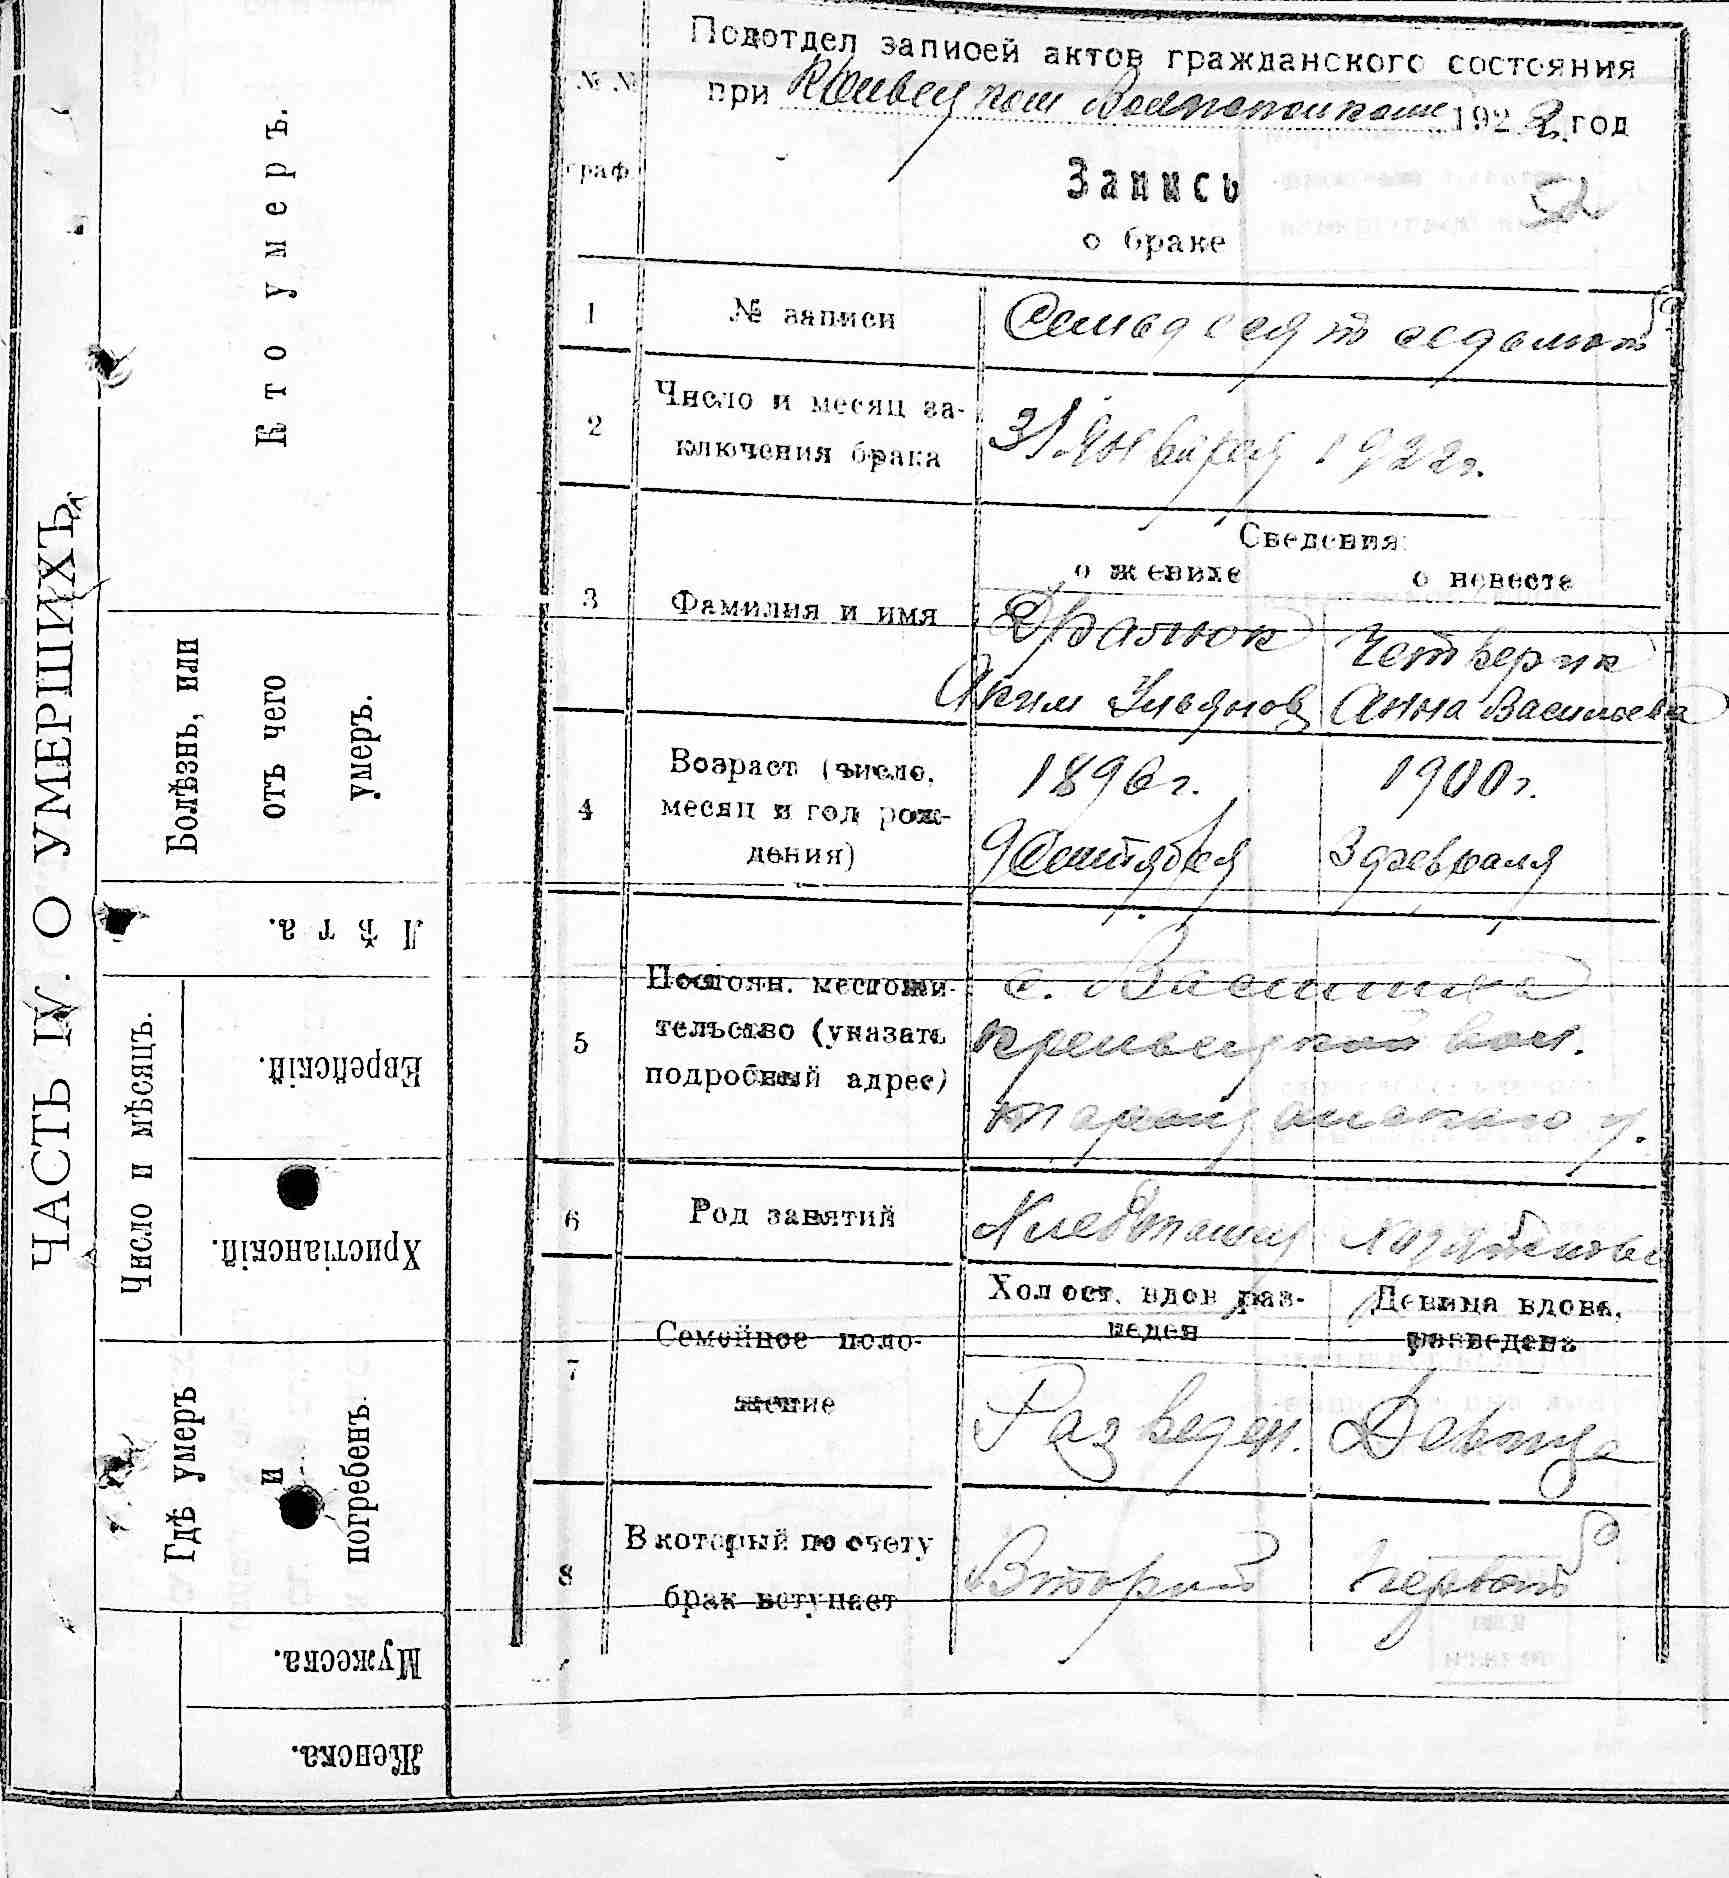 ЧАСТЬ IV. О УМЕРШИХЪ
Кто умеръ.
Болѣзнь, или
отъ чего
умеръ.
Лѣта.
Число и мѣсяцъ.
Еврейскій.
Христіанскій.
Гдѣ умеръ
и
погребенъ.
Мужеска.
Женска.
№ №
граф.
Подотдел записей актов гражданского состояния
при 1922 год
Запись
о браке
1 № записи Семьдесят седьмой
2 Число и месяц за-
ключения брака
31 Января 1922 г.
Сведения:
о женихе о невесте
3 Фамилия и имя
Дралюк Четверик
Аким Ульянов Анна Васильева
4 Возраст (число,
месяц и год рож-
дения)
1896 г. 1900 г.
9 Сентября 3 февраля
5 Постоян. местожи-
тельство (указать
подробный адрес)
с.
вол.
у.
6 Род занятий
7 Семейное поло-
жение
Холост. вдов раз-
веден
Девица вдова,
разведена
Разведен. Девица
8 В который по счету
брак вступает
Второй Первый